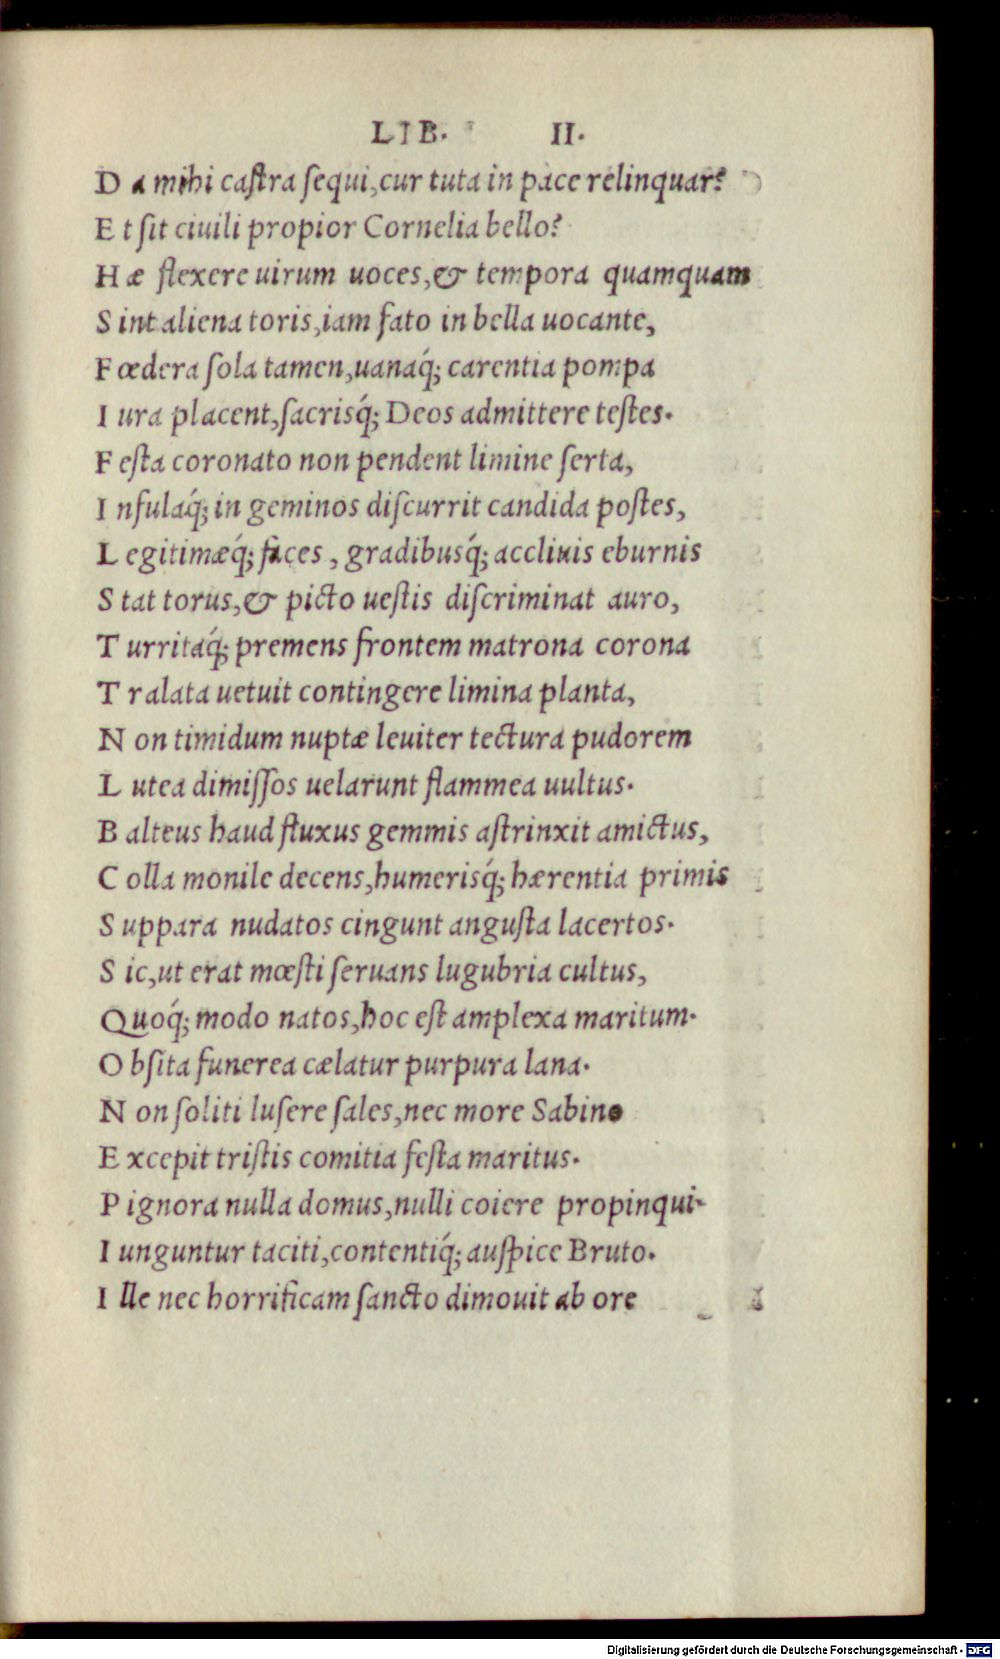 LIB. II.
D a mihi castra sequi,cur tuta in pace relinquar?
E t sit ciuili propior Cornelia bello?
H æ flexere uirum uoces,& tempora quamquam
S int aliena toris,iam fato in bella uocante,
F œdera sola tamen,uanaq́; carentia pompa
I ura placent,sacrisq́; Deos admittere testes.
F esta coronato non pendent limine serta,
I nfulaq́; in geminos discurrit candida postes,
L egitimæq́; faces , gradibusq́; accliuis eburnis
S tat torus,& picto uestis discriminat auro,
T urritaq́; premens frontem matrona corona
T ralata uetuit contingere limina planta,
N on timidum nuptæ leuiter tectura pudorem
L utea dimissos uelarunt flammea uultus.
B alteus haud fluxus gemmis astrinxit amictus,
C olla monile decens,humerisq́; hærentia primis
S uppara nudatos cingunt angusta lacertos.
S ic,ut erat mœsti seruans lugubria cultus,
Quoq́; modo natos,hoc est amplexa maritum.
O bsita funerea cælatur purpura lana.
N on soliti lusere sales,nec more Sabino
E xcepit tristis comitia festa maritus.
P ignora nulla domus,nulli coiere propinqui.
I unguntur taciti,contentiq́; auspice Bruto.
I lle nec horrificam sancto dimouit ab ore
Digitalisierung gefördert durch die Deutsche Forschungsgemeinschaft - DFG